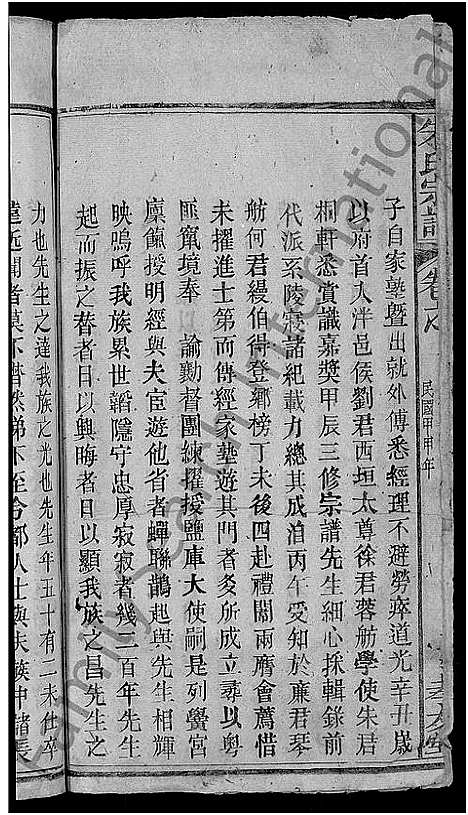 朱氏宗譜
卷之
民國甲申年
子自家塾暨出就外傅悉經理不避勞瘁道光辛丑歲
以府首入泮邑侯劉君西垣太尊徐君蓉舫學使朱君
桐軒悉賞識嘉獎甲辰三修宗譜先生細心採輯錄前
代派系陵寢諸紀載力總其成洎丙午受知於廉君琴
舫何君緩伯得登鄉榜丁未後四赴禮闈兩膺會薦惜
未擢進士第而傳經家塾遊其門者多所成立尋以粵
匪竄境奉 諭勷督團練擢授鹽庫大使嗣是列黌宮
廩餼授明經與夫宦遊他省者蟬聯鵲起與先生相輝
映嗚呼我族累世韜隱守忠厚寂寂者幾二百年先生
起而振之替者日以興晦者日以顯我族之昌先生之
力也先生之達我族之光也先生年五十有二未仕卒
遠近聞者莫不潸然涕下至今都人士與夫族中諸長